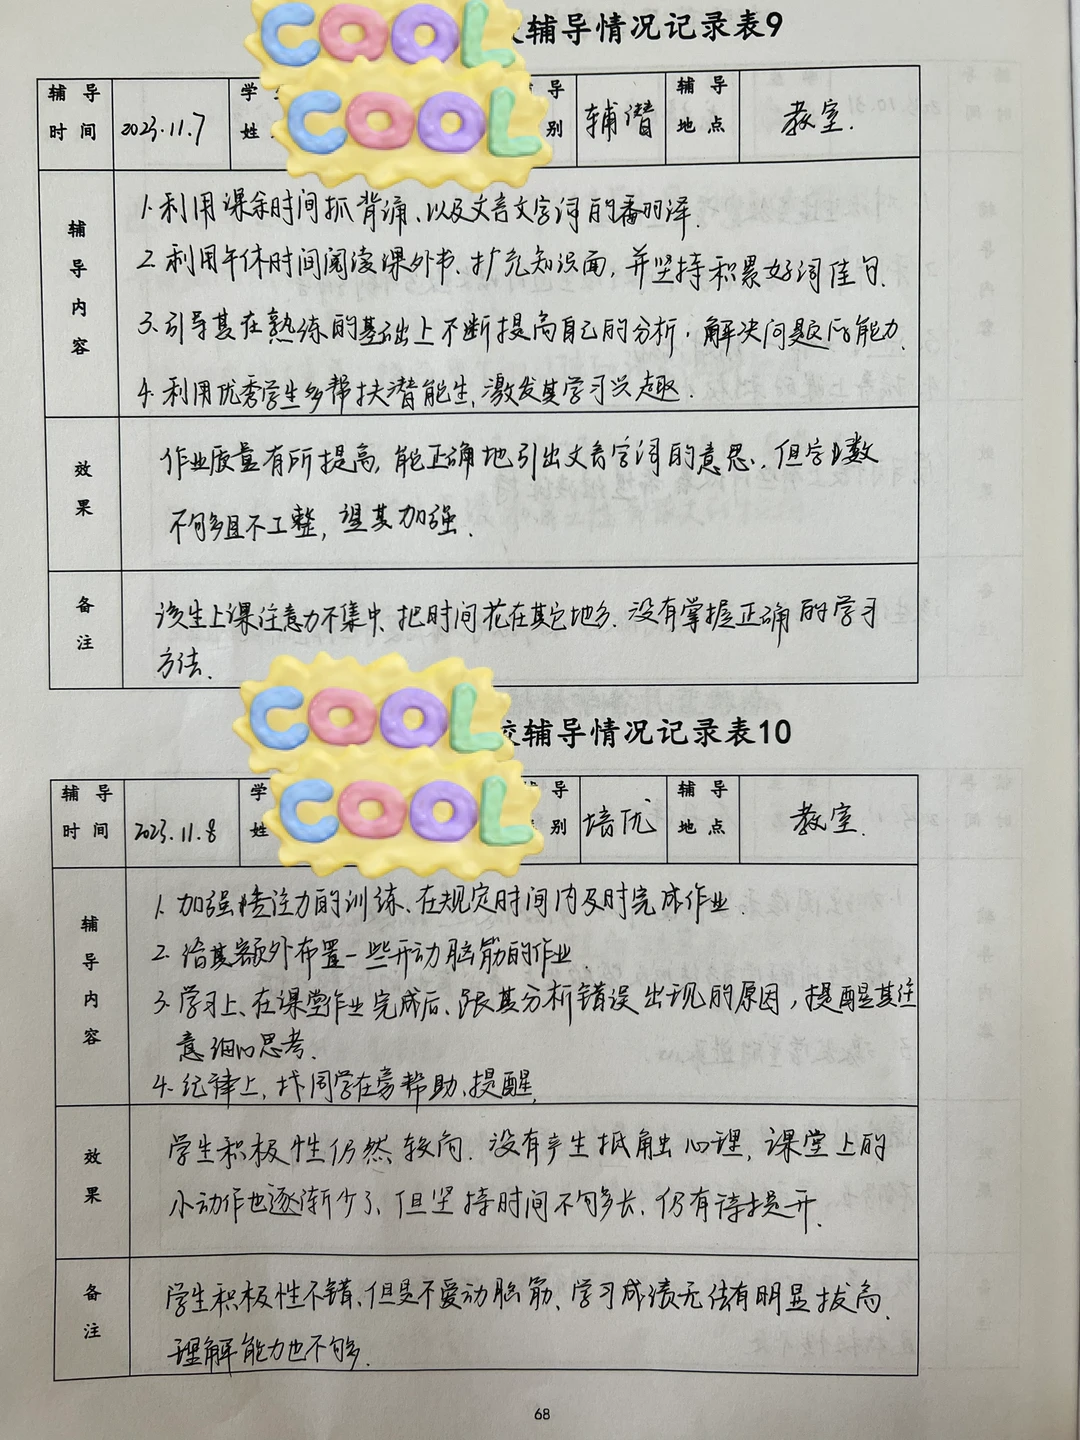 COOL
COOL
辅导情况记录表9
辅导时间 2023.11.7 学 姓 导 别 辅潜 辅导地点 教室.
辅导内容
1.利用课余时间抓背诵、以及文言文字词的翻译.
2.利用午休时间阅读课外书、扩充知识面,并坚持积累好词佳句.
3.引导其在熟练的基础上不断提高自己的分析,解决问题的能力.
4.利用优秀学生多帮扶潜能生,激发其学习兴趣.
效果
作业质量有所提高,能正确地引出文言字词的意思,但字数
不够多且不工整,望其加强.
备注
该生上课注意力不集中,把时间花在其它地方.没有掌握正确的学习
方法.
COOL
COOL
校辅导情况记录表10
辅导时间 2023.11.8 学 姓 导 别 培优 辅导地点 教室.
辅导内容
1.加强专注力的训练、在规定时间内及时完成作业.
2.给其额外布置一些开动脑筋的作业.
3.学习上、在课堂作业完成后、跟其分析错误出现的原因,提醒其注
意细心思考.
4.纪律上,找同学在旁帮助、提醒.
效果
学生积极性仍然较高.没有产生抵触心理,课堂上的
小动作也逐渐少了、但坚持时间不够长、仍有待提升.
备注
学生积极性不错,但是不爱动脑筋、学习成绩无法有明显拔高.
理解能力也不够.
68